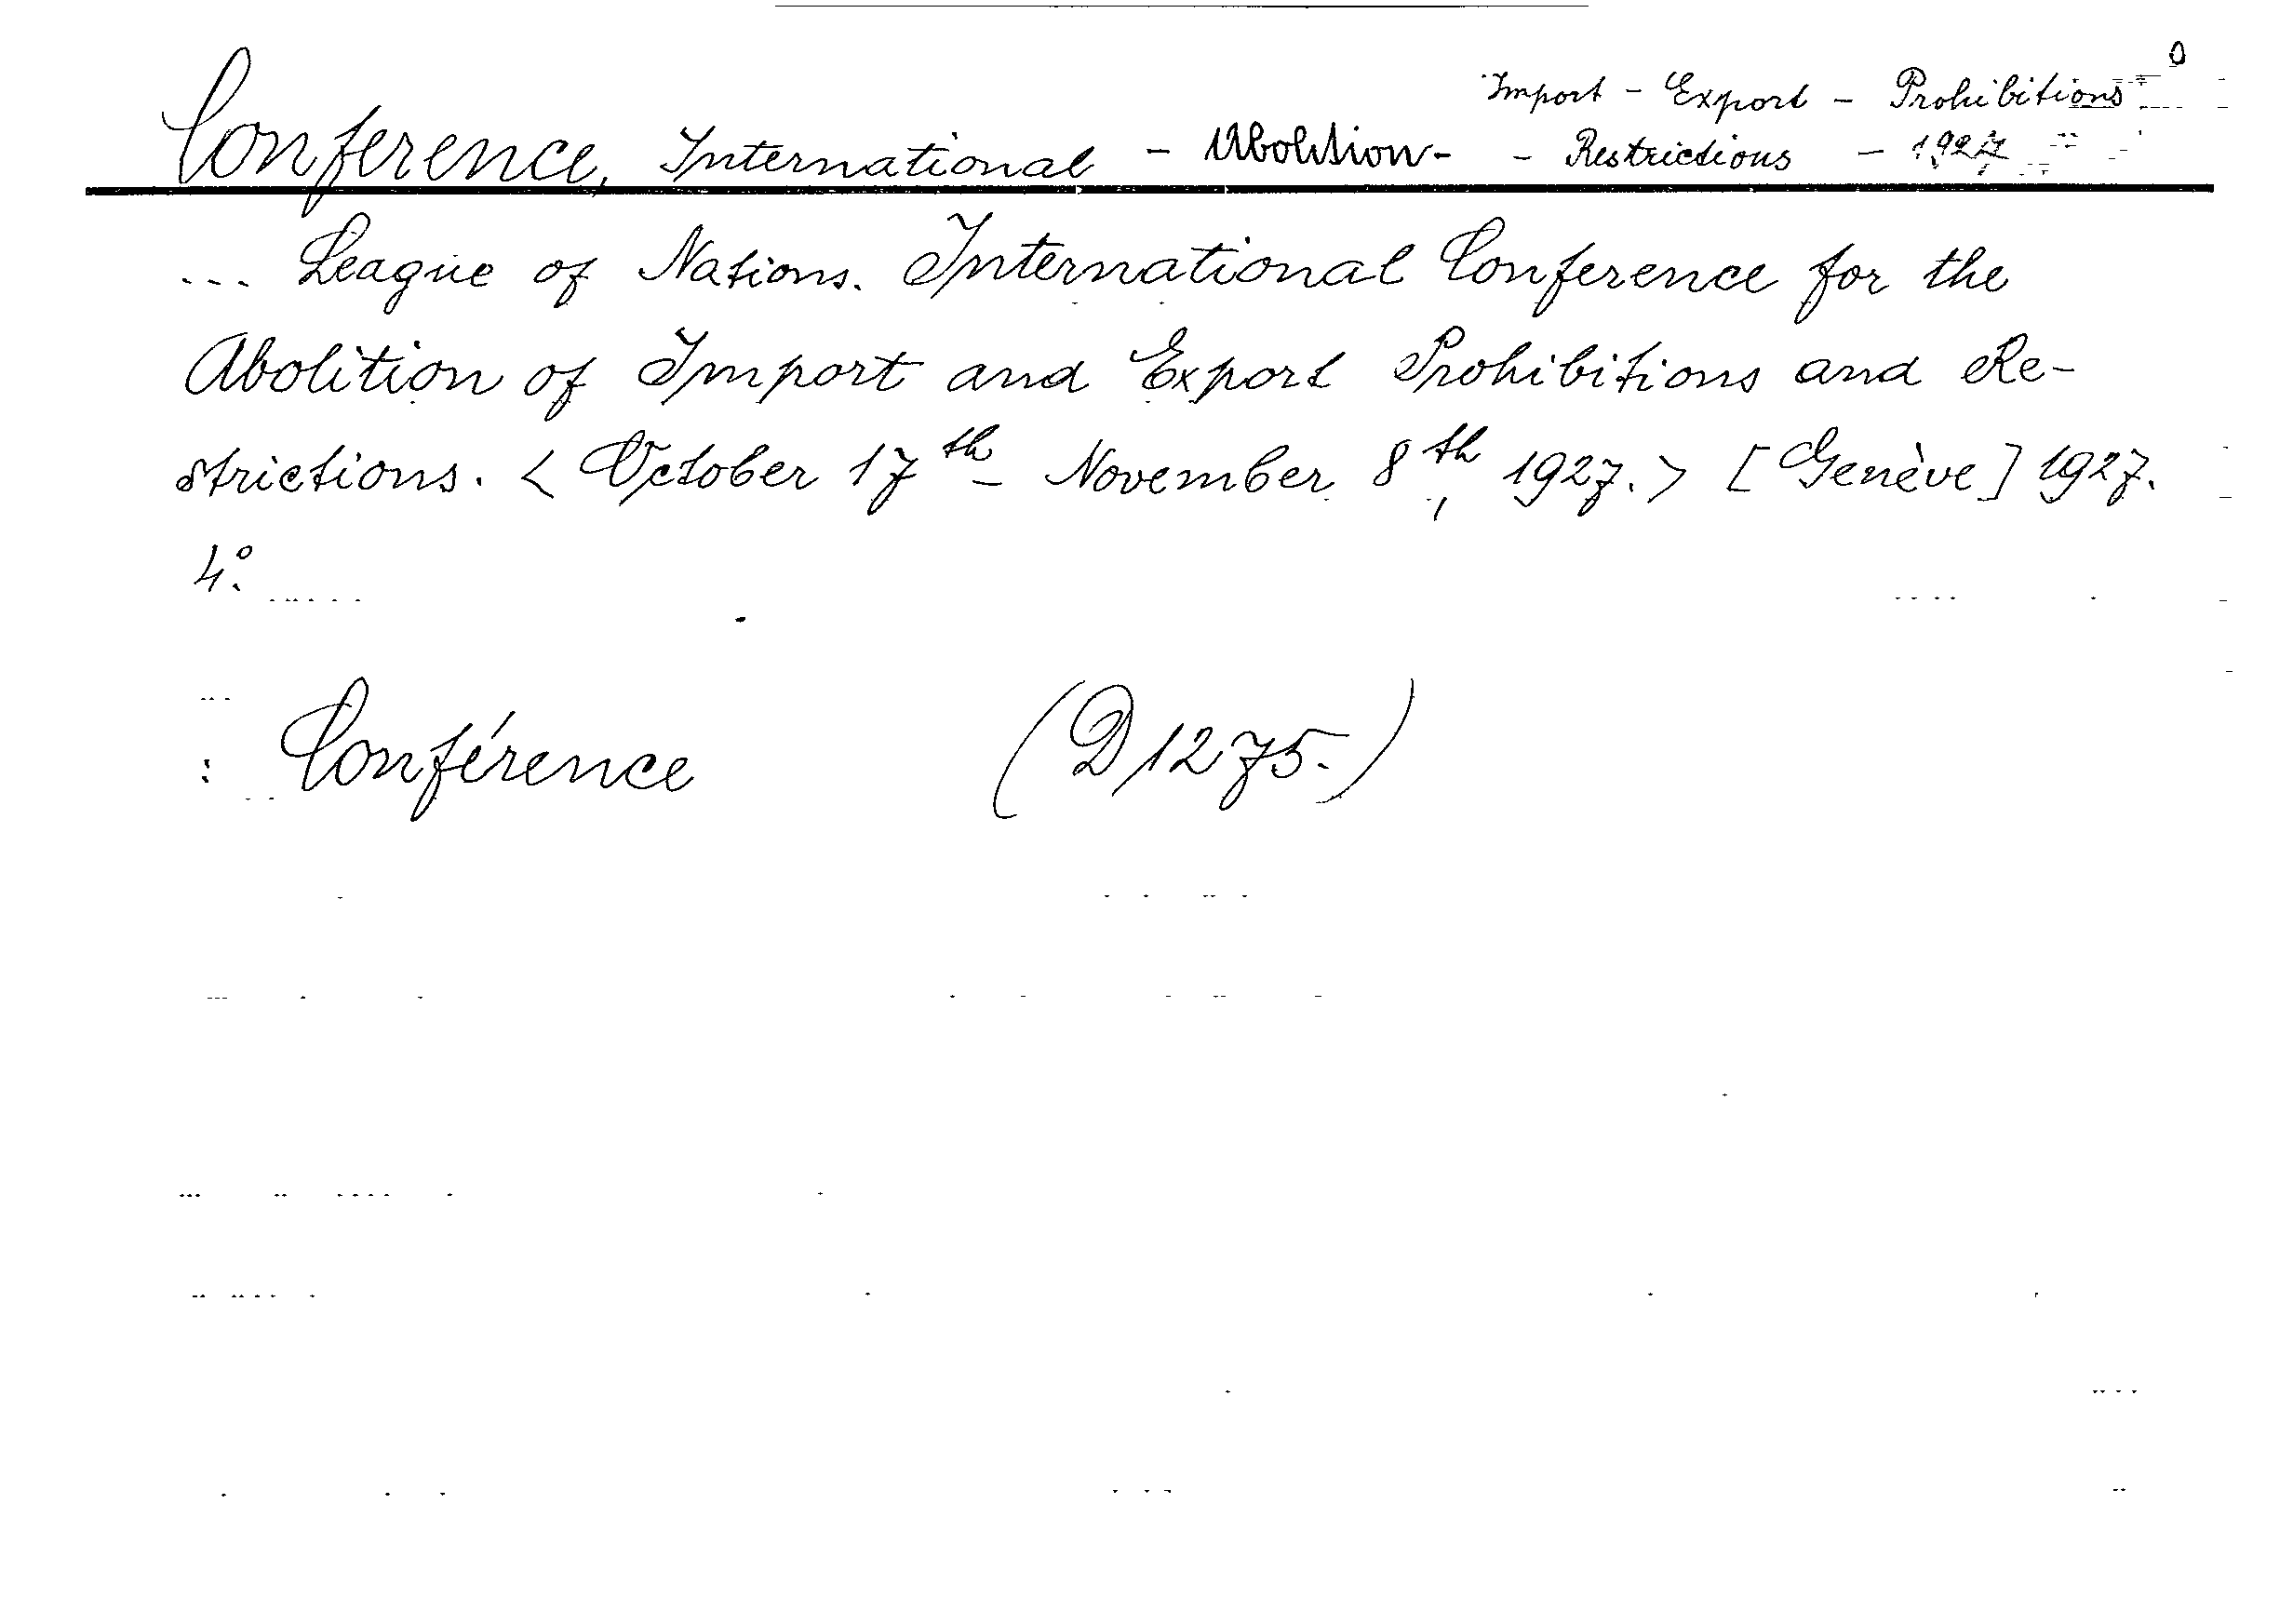 Import - Export - Prohibitions
Conference, International - Abolition- - Restrictions - 1927
... League of Nations. International Conference for the
Abolition of Import and Export Prohibitions and Re-
strictions. < October 17th - November 8th, 1927. > [Genève] 1927.
4°.
: Conférence (D 1275.)